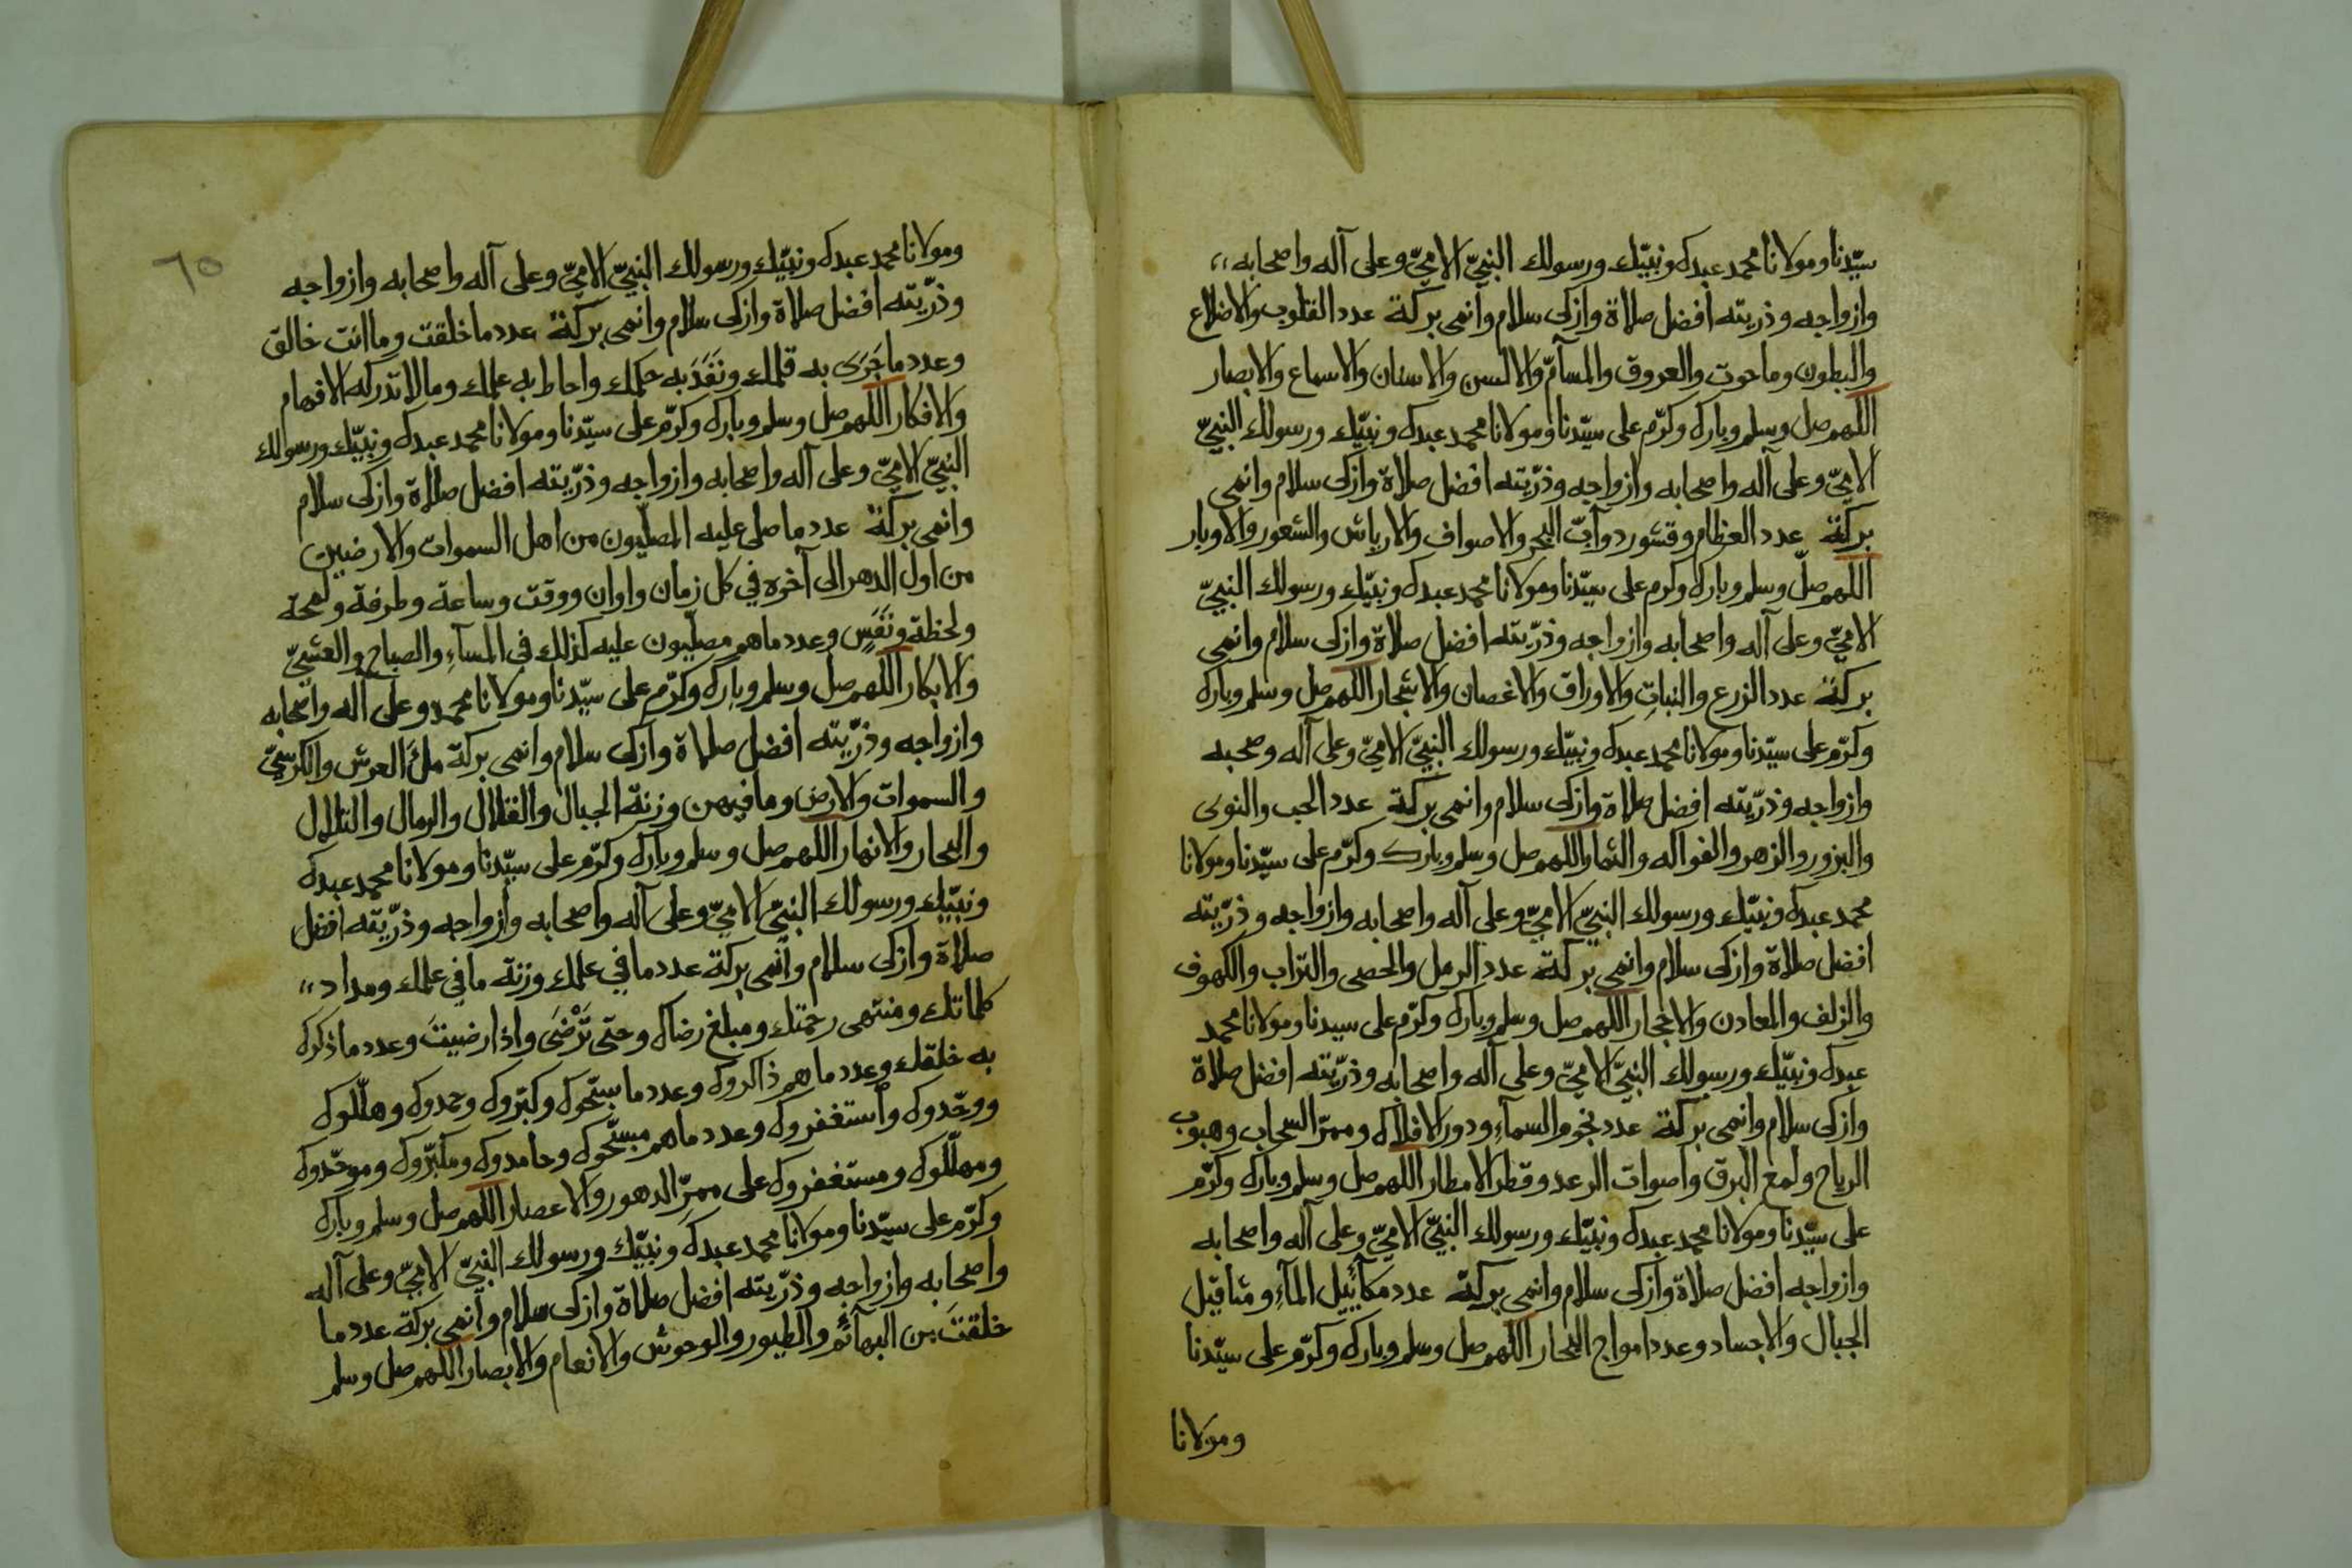 سيّدنا ومولانا محمد عبدك ونبيّك ورسولك النبيّ الاميّ وعلى آله واصحابه،،
وازواجه وذريته افضل صلاة وازكى سلام وانمى بركة عدد القلوب والاضلاع
والبطون وما حوت والعروق والمسآمّ والالسن والاسنان والاسماع والابصار
اللهم صل وسلم وبارك وكرّم على سيّدنا ومولانا محمد عبدك ونبيّك ورسولك النبيّ
الاميّ وعلى آله واصحابه وازواجه وذرّيته افضل صلاة وازكى سلام وانمى
بركة عدد العظام وقشور دوآبّ البحر والاصواف والارياش والشعور والاوبار
اللهم صلّ وسلم وبارك وكرم على سيّدنا ومولانا محمد عبدك ونبيّك ورسولك النبيّ
الاميّ وعلى آله واصحابه وازواجه وذرّيته افضل صلاة وازكى سلام وانمى
بركة عدد الزرع والنباتِ والاوراق والاغصان والاشجار اللهم صل وسلم وبارك
وكرّم على سيّدنا ومولانا محمد عبدك ونبيّك ورسولك النبيّ الاميّ وعلى آله وصحبه
وازواجه وذرّيته افضل صلاة وازكى سلام وانمى بركة عدد الحب والنوى
والبزور والزهر والفواكه والثمار اللهم صل وسلم وبارك وكرّم على سيّدنا ومولانا
محمد عبدك ونبيّك ورسولك النبيّ الاميّ وعلى آله واصحابه وازواجه وذرّيته
افضل صلاة وازكى سلام وانمى بركة عدد الرمل والحصى والتراب والكهوف
والزلف والمعادن والاحجار اللهم صل وسلم وبارك وكرّم على سيدنا ومولانا محمد
عبدك ونبيّك ورسولك النبيّ الاميّ وعلى آله واصحابه وذرّيته افضل صلاة
وازكى سلام وانمى بركة عدد نجوم السمآءِ ودور الافلاك وممرّ السّحاب وهبوب
الرياح ولمع البرق واصوات الرعد وقطر الامطار اللهم صل وسلم وبارك وكرّم
على سيّدنا ومولانا محمد عبدك ونبيّك ورسولك النبيّ الاميّ وعلى آله واصحابه
وازواجه افضل صلاة وازكى سلام وانمى بركة عدد مكآئيل المآءِ ومثاقيل
الجبال والاجساد وعدد امواج البحار اللهم صل وسلم وبارك وكرّم على سيّدنا
ومولانا
٦٥
ومولانا محمد عبدك ونبيّك ورسولك النبيّ الاميّ وعلى آله واصحابه وازواجه
وذرّيته افضل صلاة وازكى سلام وانمى بركة عدد ما خلقت وما انت خالق
وعدد ما جَرَى به قلمك ونَفَذَ به حكمك واحاط به علمك وما لا تدركه الافهام
والافكار اللهم صل وسلم وبارك وكرّم على سيّدنا ومولانا محمد عبدك ونبيّك ورسولك
النبيّ الاميّ وعلى آله واصحابه وازواجه وذرّيته افضل صلاة وازكى سلام
وانمى بركة عدد ما صلى عليه المصلّيون من اهل السموات والارضين
من اول الدهر الى آخره في كل زمان واوان ووقت وساعة وطرفة ولمحة
ولحظة ونَفَسٍ وعدد ما هم مصلّيون عليه كذلك في المسآءِ والصباح والعشيّ
والابكار اللهم صل وسلم وبارك وكرّم على سيّدنا ومولانا محمد وعلى آله واصحابه
وازواجه وذرّيته افضل صلاة وازكى سلام وانمى بركة ملءَ العرش والكرسيّ
والسموات والارض وما فيهن وزنة الجبال والقلال والرمال والتلال
والبحار والانهار اللهم صل وسلم وبارك وكرّم على سيّدنا ومولانا محمد عبدك
ونبيّك ورسولك النبيّ الاميّ وعلى آله واصحابه وازواجه وذرّيته افضل
صلاة وازكى سلام وانمى بركة عدد ما في علمك وزنة ما في علمك ومداد،،
كلماتك ومنتهى رحمتك ومبلغ رضاك وحتى تَرْضَى واذا رضيتَ وعدد ما ذكرك
به خلقك وعدد ما هم ذاكروك وعدد ما سبّحوك وكبّروك وحمدوك وهلّلوك
ووحّدوك واستغفروك وعدد ما هم مسبّحوك وحامدوك ومكبّروك وموحّدوك
ومهلّلوك ومستغفروك على ممرّ الدهور والاعصار اللهم صل وسلم وبارك
وكرّم على سيّدنا ومولانا محمد عبدك ونبيّك ورسولك النبيّ الاميّ وعلى آله
واصحابه وازواجه وذرّيته افضل صلاة وازكى سلام وانمى بركة عدد ما
خلقتَ من البهآئم والطيور والوحوش والانعام والابصار اللهم صل وسلم